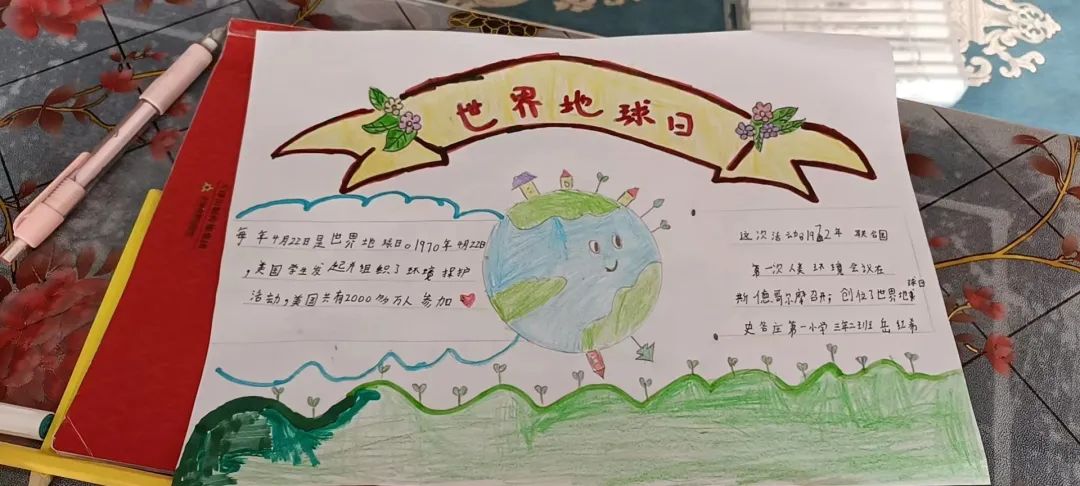 世界地球日
每年4月22日是世界地球日。1970年4月22日
,美国学生发起并组织了环境保护
活动,美国共有2000多万人参加
这次活动。1972年 联合国
第一次人类环境会议在
斯德哥尔摩召开; 创位了世界地球日
第一小学三年二班岳红